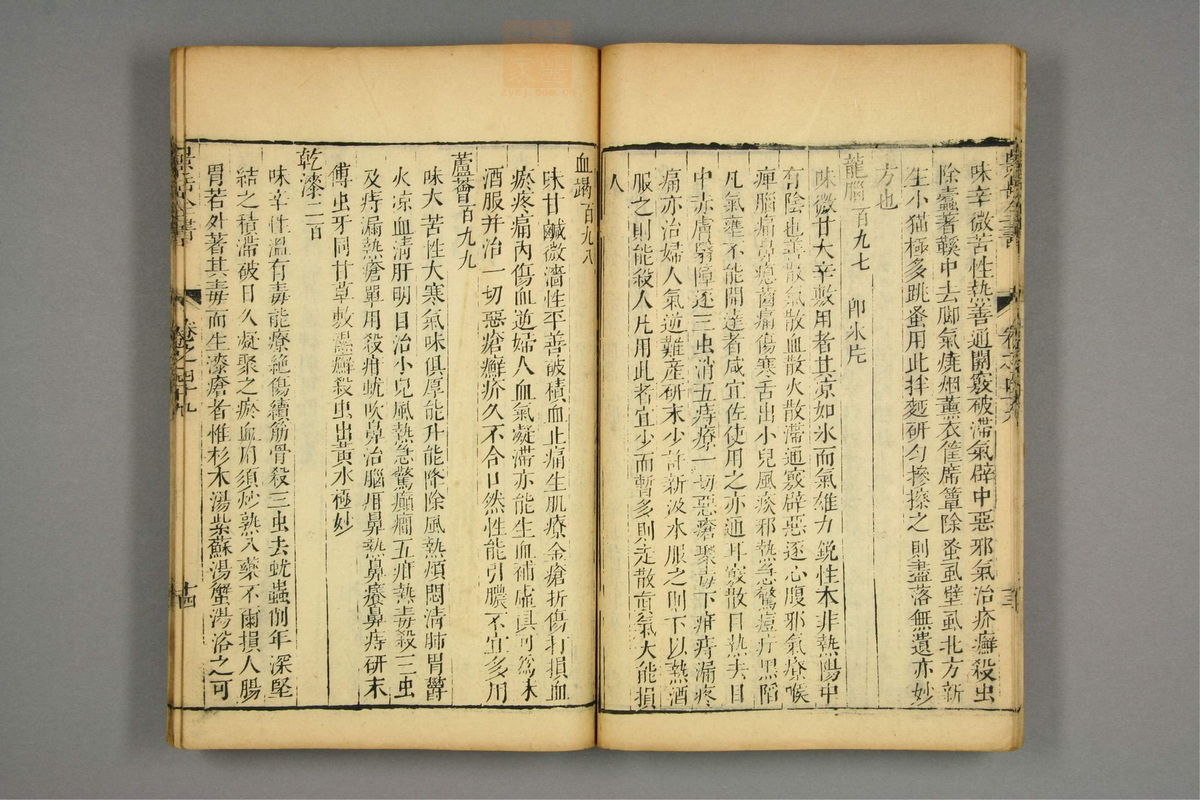 味辛微苦性熱善通關竅破滯氣辟中惡邪氣治疥癬殺虫
除蠱著鞵中去脚氣燒烟薰衣筐席簟除蚤虱壁虱北方新
生小猫極多跳蚤用此拌麪研勻摻擦之則盡落無遺亦妙
方也
龍腦百九七 即氷片
味微甘大辛敷用者其凉如氷而氣雄力銳性本非熱陽中
有陰也善散氣散血散火散滯通竅辟惡逐心腹邪氣療喉
痺腦痛鼻瘜齒痛傷寒舌出小兒風痰邪熱急驚痘疔黑陷
凡氣壅不能開達者咸宜佐使用之亦通耳竅散目熱去目
中赤膚翳障逐三虫消五痔療一切惡瘡聚毒下疳痔漏疼
痛亦治婦人氣逆難産研末少許新汲水服之則下以熱酒
服之則能殺人凡用此者宜少而暫多則走散眞氣大能損
人
血竭百九八
味甘鹹微濇性平善破積血止痛生肌療金瘡折傷打損血
瘀疼痛內傷血逆婦人血氣凝滯亦能生血補虛俱可爲末
酒服并治一切惡瘡癬疥久不合口然性能引膿不宜多用
蘆薈百九九
味大苦性大寒氣味俱厚能升能降除風熱煩悶清肺胃欝
火凉血清肝明目治小兒風熱急驚癲癇五疳熱毒殺三虫
及痔漏熱瘡單用殺疳蚘吹鼻治腦疳鼻熱鼻癢鼻痔研末
傅虫牙同甘草敷濕癬殺虫出黃水極妙
乾漆二百
味辛性溫有毒能療絶傷續筋骨殺三虫去蚘蟲削年深堅
結之積滯破日久凝聚之瘀血用須炒熟入藥不爾損人腸
胃若外著其毒而生漆瘡者惟杉木湯紫蘇湯蟹湯浴之可
景岳全書
卷之四十九
十四